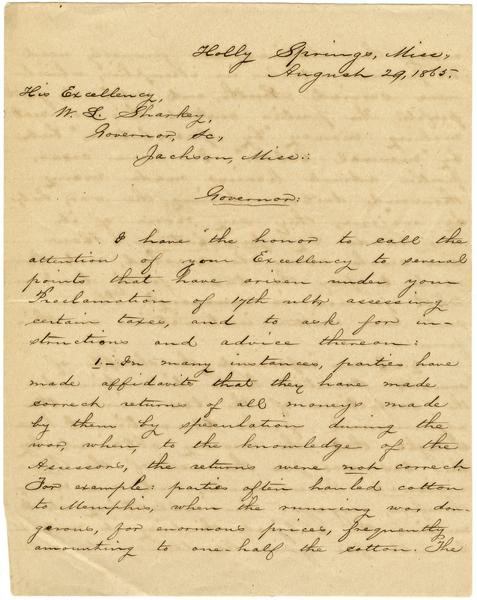 Holly Springs, Miss,
August 29, 1865.
His Excellency,
W. L. Sharkey,
Governor, &c,
Jackson, Miss.:
Governor:
I have the honor to call the
attention of your Excellency to several
points that have arisen under your
Proclamation of 17th ulto assessing
certain taxes, and to ask for in-
structions and advice thereon:
1.- In many instances, parties have
made affidavits that they have made
correct returns of all moneys made
by them by speculation during the
war, when, to the knowledge of the
Assessors, the returns were not correct.
For example: parties often hauled cotton
to Memphis, when the running was dan-
gerous, for enormous prices, frequently
amounting to one-half the cotton. The